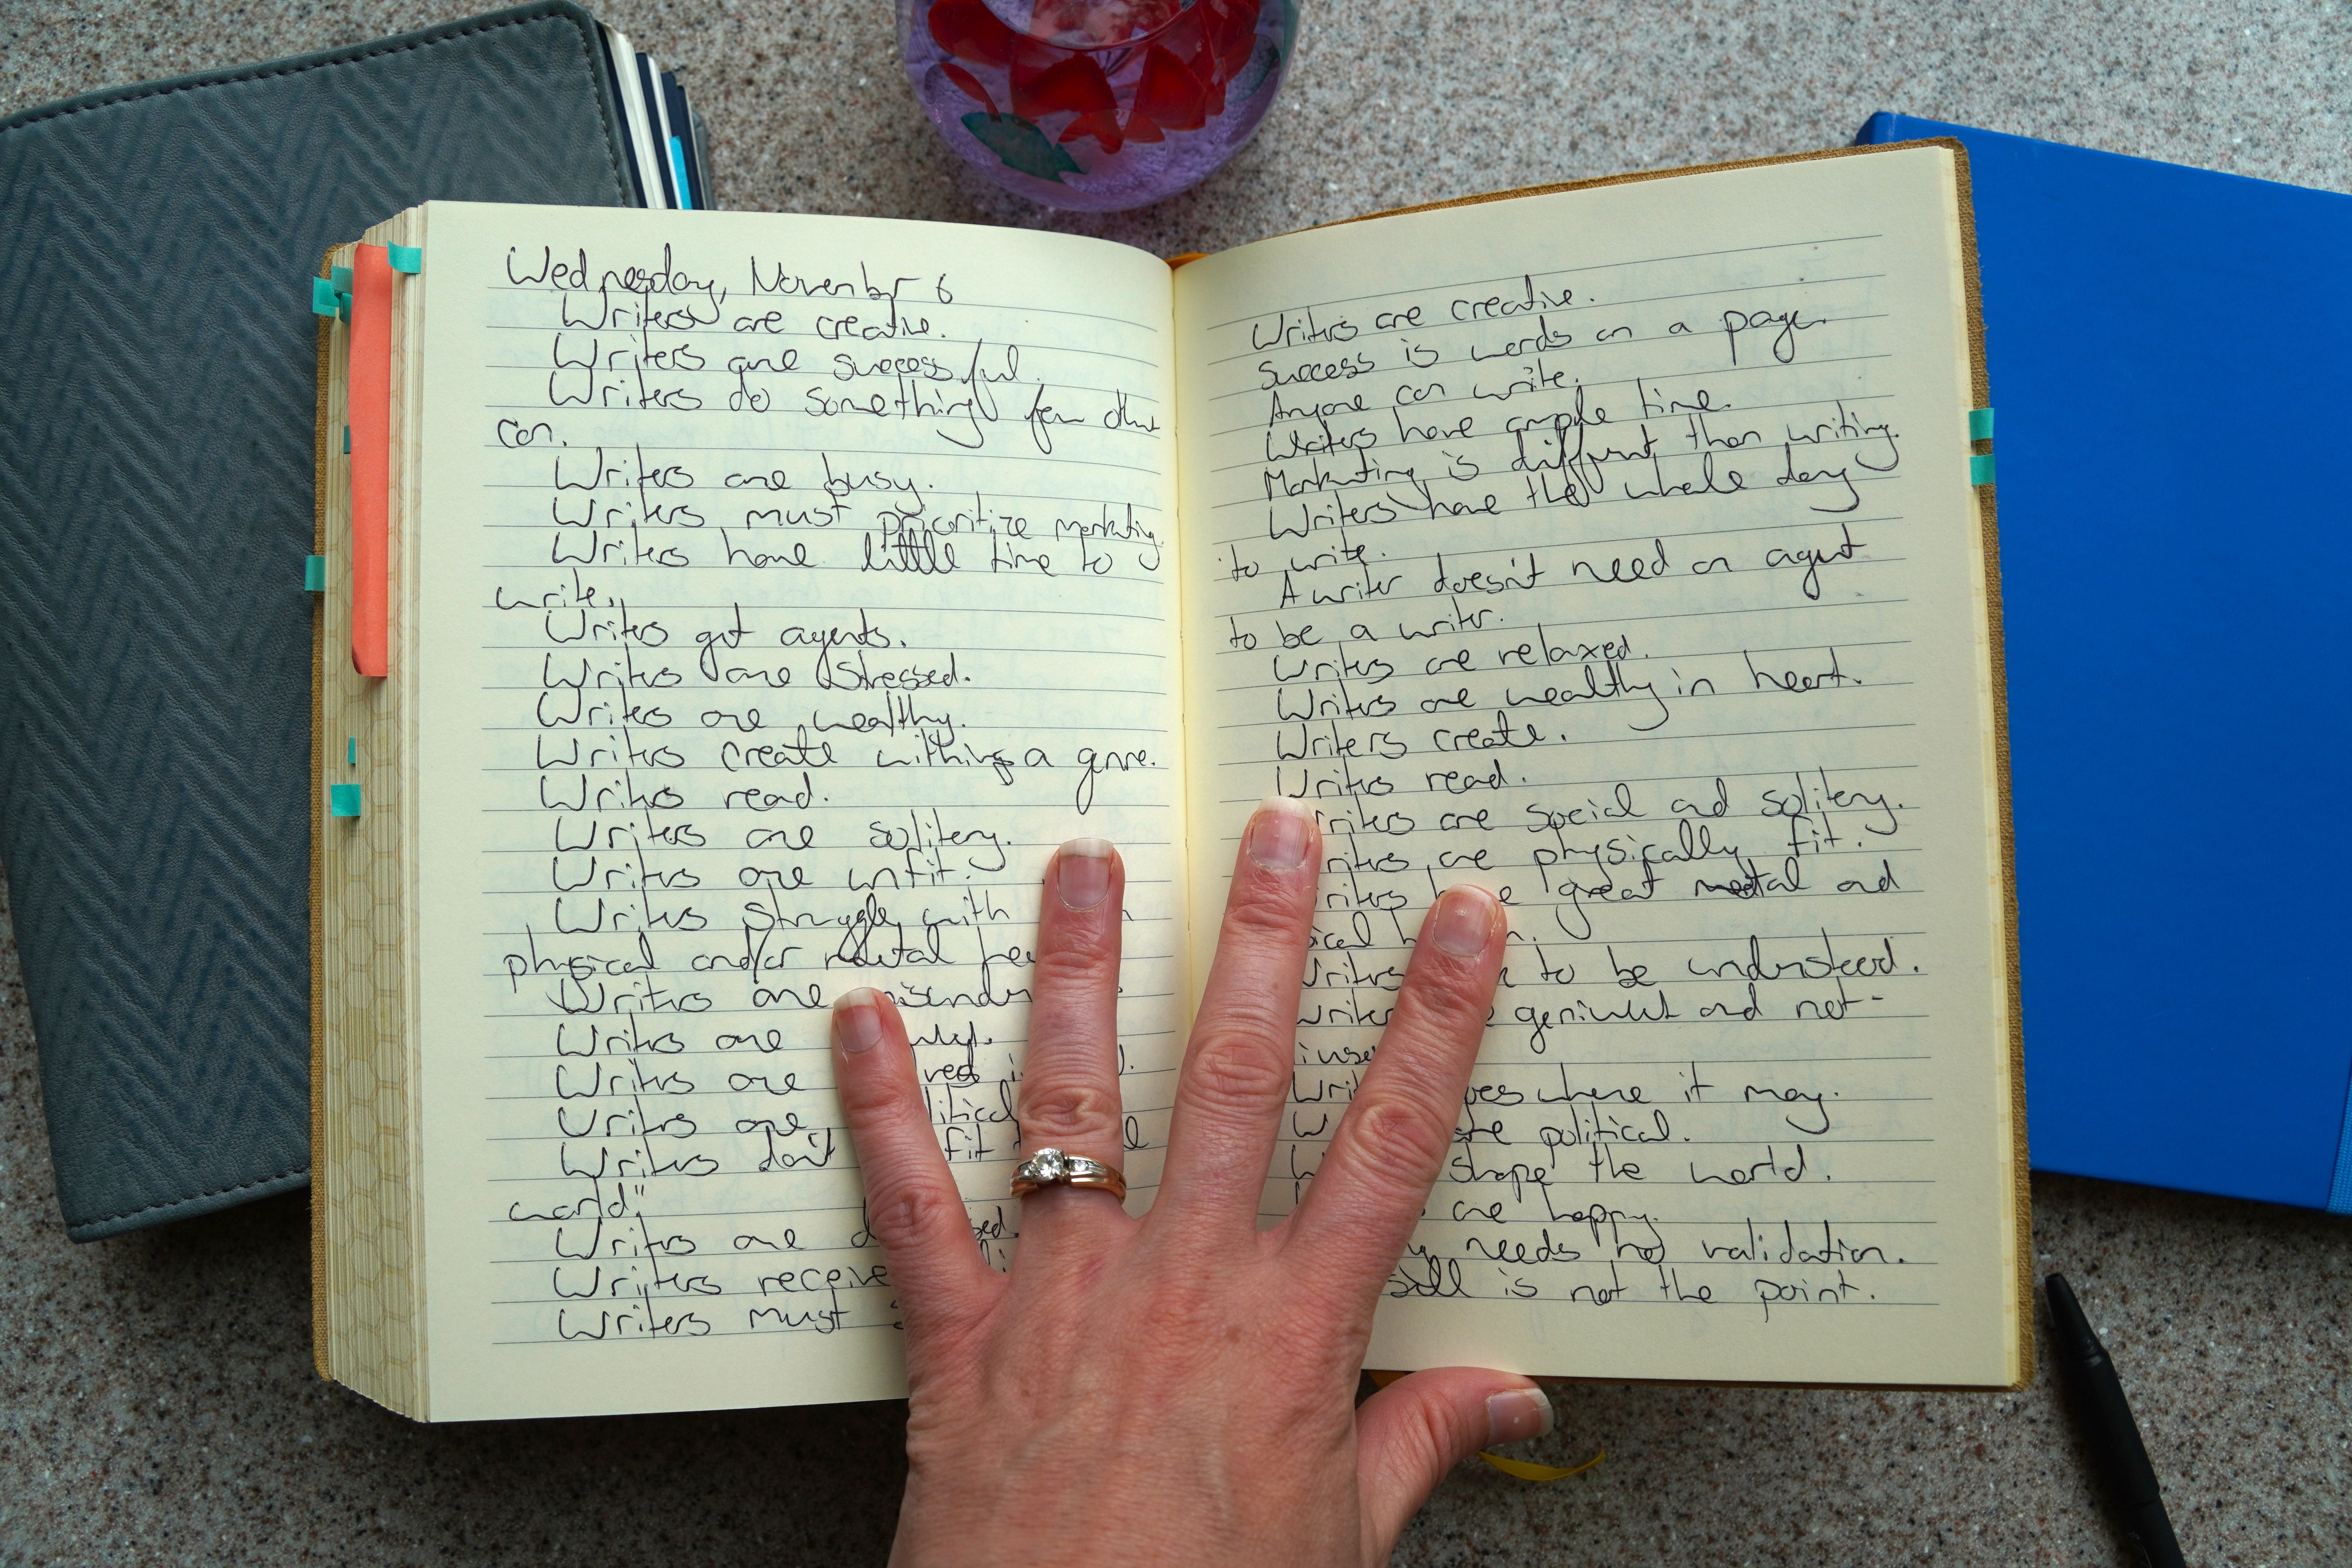 Wednesday, November 6
Writers are creative.
Writers are successful.
Writers do something few other
can.
Writers are busy.
Writers must prioritize marketing.
Writers have little time to
write.
Writers get agents.
Writers are stressed.
Writers are wealthy.
Writers create within a genre.
Writers read.
Writers are solitery.
Writers are unfit.
Writers struggle with
physical and/or mental
Writers are
Writers are
Writers are
Writers are
Writers don't fit
world."
Writers are
Writers receive
Writers must
Writers are creative.
Success is words on a page.
Anyone can write.
Writers have ample time.
Marketing is different than writing.
Writers have the whole day
to write.
A writer doesn't need an agent
to be a writer.
Writers are relaxed.
Writers are wealthy in heart.
Writers create.
Writers read.
Writers are social and solitery.
Writers are physically fit.
Writers great mental and
Writers to be understood.
Writers and not-
where it may.
are political.
shape the world.
are happy.
needs no validation.
is not the point.